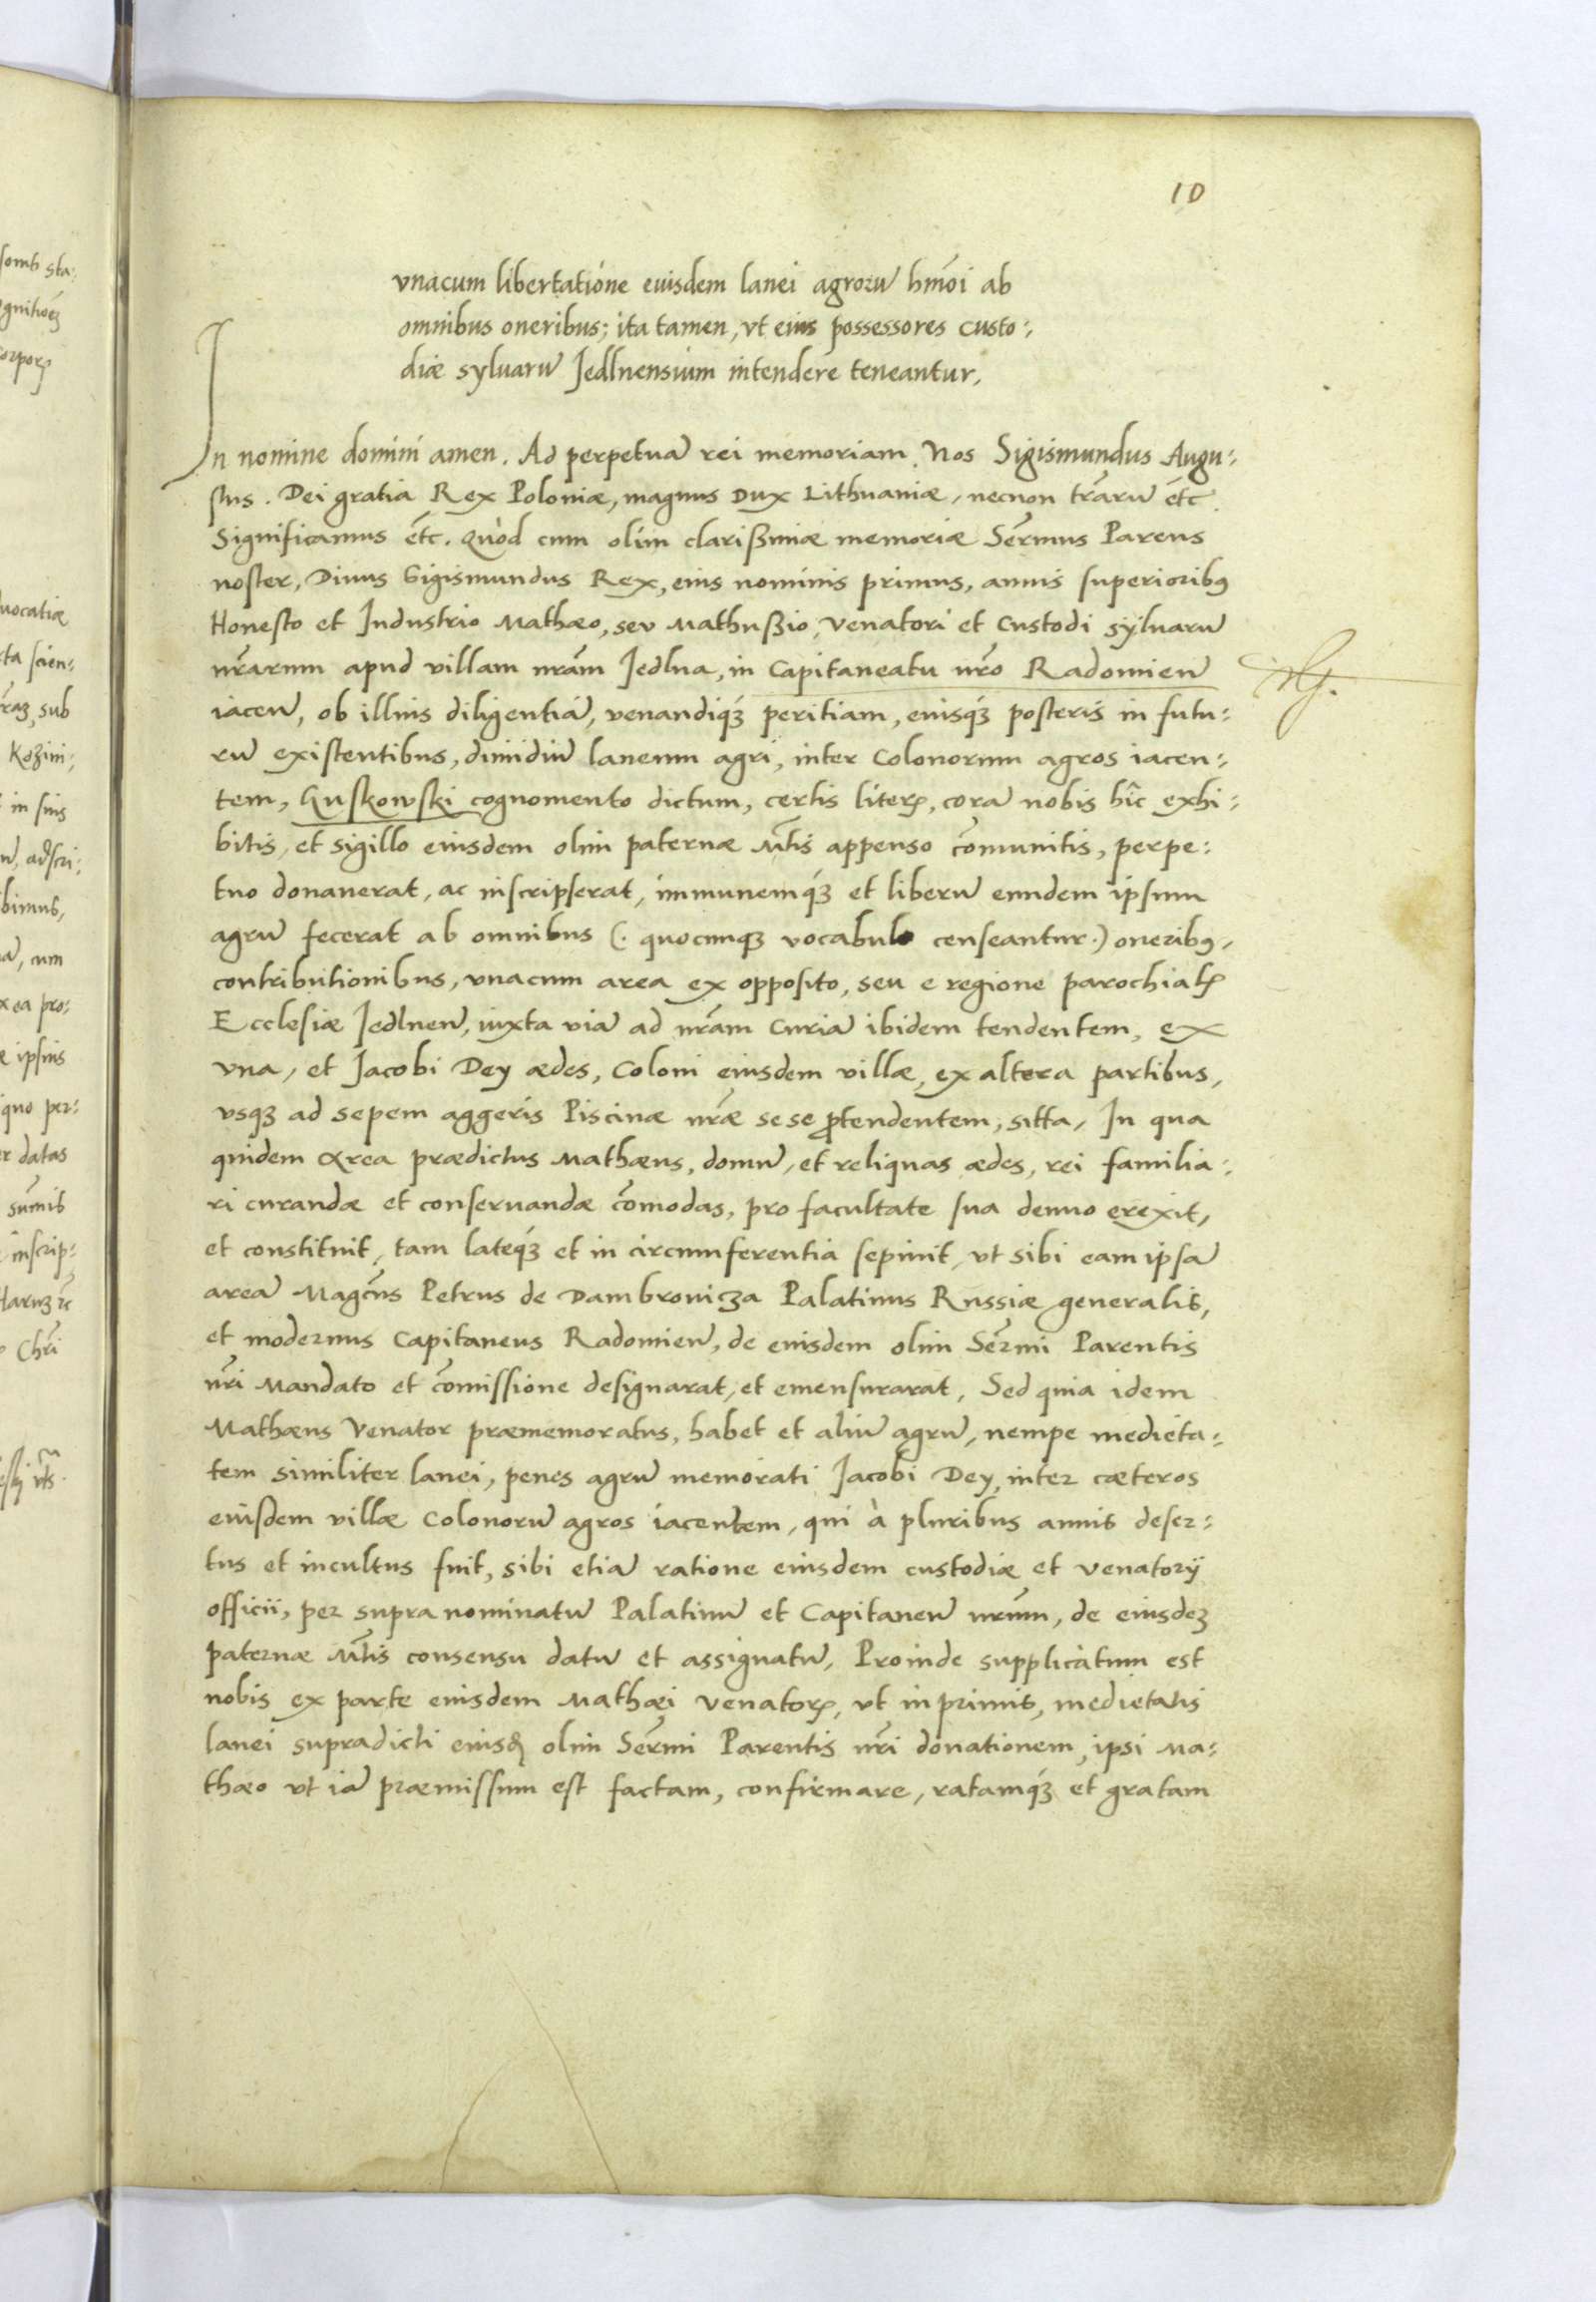 10
vnacum libertatione euisdem lanei agrorũ hm̃oi ab
omnibus oneribus; ita tamen, vt eius possessores custo:
diæ syluarũ Jedlnensium intendere teneantur,
In nomine domini amen. Ad perpetuã rei memoriam. Nos Sigismundus Augu:
stus. Dei gratia Rex Poloniæ, magnus Dux Lithuaniæ, necnon tr̃arũ etc̃.
Significamus etc̃. Quòd cum olim clarißimæ memoriæ Ser̃mus Parens
noster, Diuus Sigismundus Rex, eius nominis primus, annis superioribꝰ
Honesto et Industrio Mathæo, seu Mathußio, Venatori et Custodi syluarũ
nr̃arum apud villam nrãm Jedlna, in Capitaneatu nrõ Radomieñ
iaceñ, ob illius diligentiã, venandiqꝫ peritiam, euisqꝫ posteris in futu:
rũ existentibus, dimidiũ laneum agri, inter Colonorum agros iacen:
tem, Guskowski cognomento dictum, certis literꝭ, corã nobis hîc exhi:
bitis, et sigillo eiusdem olim paternæ Mt̃is appenso com̃unitis, perpe:
tuo donauerat, ac inscripserat, immunemqꝫ et liberũ eundem ipsum
agrũ fecerat ab omnibus (. quocunqꝫ vocabulo censeantur.) oneribꝰ,
contributionibus, vnacum area ex opposito, seu e regione parochialꝭ
Ecclesiæ Jedlneñ, iuxta viã ad nrãm Curiã ibidem tendentem, ex
vna, et Jacobi Dey ædes, Coloni eiusdem villæ, ex altera partibus,
vsqꝫ ad sepem aggeris Piscinæ nræ̃ sese ꝓtendentem, sitta, In qua
quidem Area prædictus Mathæus, domũ, et reliquas ædes, rei familia:
ri curandæ et conseruandæ com̃odas, pro facultate sua denuo erexit,
et constituit, tam lateqꝫ et in circumferentia sepiuit, vt sibi eam ipsã
areã Magc̃us Petrus de Dambrovicza Palatinus Russiæ generalis,
et modernus Capitaneus Radomieñ, de euisdem olim Ser̃mi Parentis
nr̃i Mandato et com̃issione designarat, et emensurarat, Sed quia idem
Mathæus Venator præmemoratus, habet et aliũ agrũ, nempe medieta:
tem similiter lanei, penes agrũ memorati Jacobi Dey, inter cæteros
euisdem villæ Colonorũ agros iacentem, qui à pluribus annis deser:
tus et incultus fuit, sibi etiã ratione eiusdem custodiæ et venatorij
officii, per supra nominatũ Palatinũ et Capitaneũ nrũm, de eiusdeꝫ
paternæ Mt̃is consensu datũ et assignatũ, Proinde supplicatum est
nobis ex parte eiusdem Mathæi Venatorꝭ, vt inprimis, medietatis
lanei supradicti eiusꝺ olim Ser̃mi Parentis nr̃i donationem, ipsi Ma:
thæo vt iã præmissum est factam, confirmare, ratamqꝫ et gratam